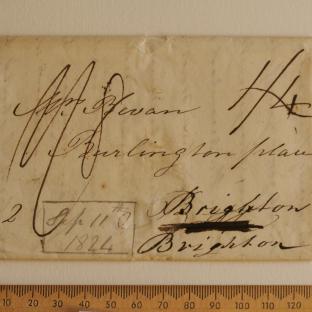 1/4
Mrs Bevan
Burlington place
2
Brighton
Sep 11th
1824
Brighton
10 20 30 40 50 60 70 80 90 100 110 120